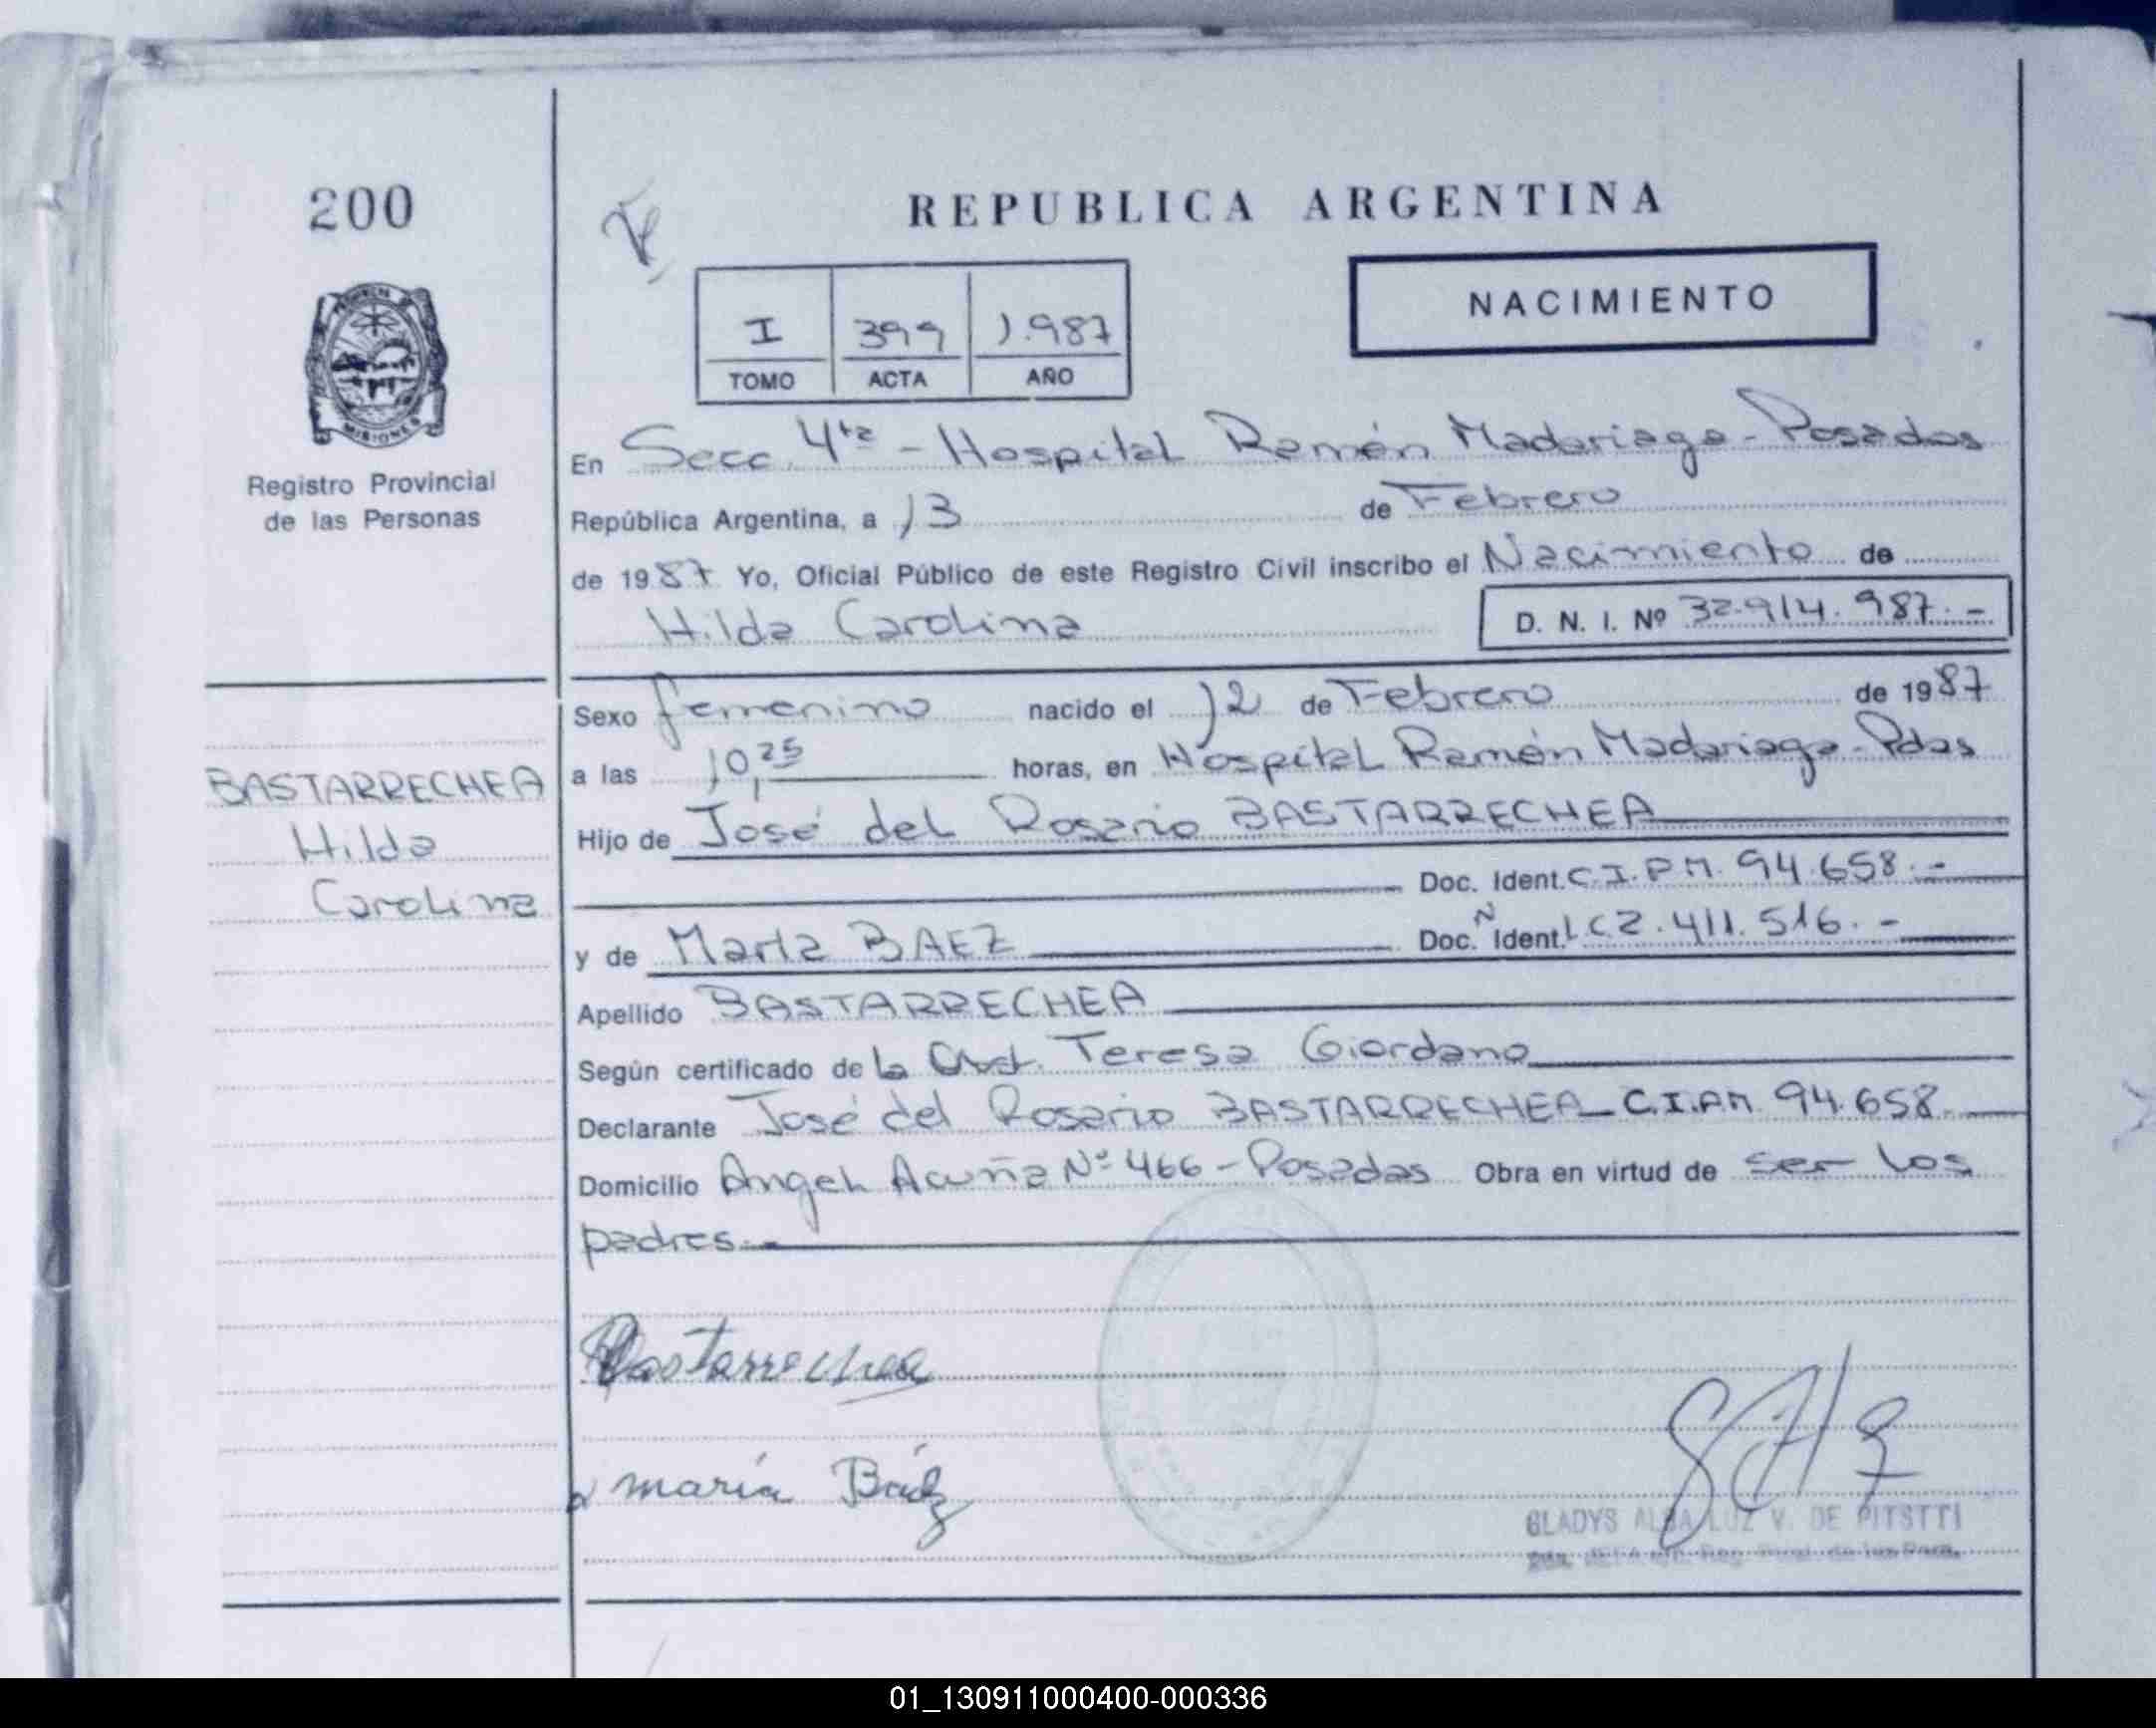 200
REPUBLICA ARGENTINA
NACIMIENTO
I 399 1.987
TOMO ACTA AÑO
MISIONES
Registro Provincial
de las Personas
En Secc. 4ta - Hospital Ramón Madariaga - Posadas
República Argentina, a 13 de Febrero
de 1987 Yo, Oficial Público de este Registro Civil inscribo el Nacimiento de
Hilda Carolina D. N. I. Nº 32.914.987.-
Sexo femenino nacido el 12 de Febrero de 1987
a las 10,25 horas, en Hospital Ramón Madariaga - Pdas
BASTARRECHEA
Hilda
Carolina
Hijo de José del Rosario BASTARRECHEA
Doc. Ident. C.I.P.M. 94.658.-
y de María BAEZ Doc. N Ident. L.C 2.411.516.-
Apellido BASTARRECHEA
Según certificado de la Obst. Teresa Giordano
Declarante José del Rosario BASTARRECHEA - C.I.P.M 94.658.
Domicilio Angel Acuña Nº 466 - Posadas Obra en virtud de ser los
padres.-
Bastarrechea
maría Báez
GLADYS ALBA LUZ V. DE PITSTTI
01_130911000400-000336